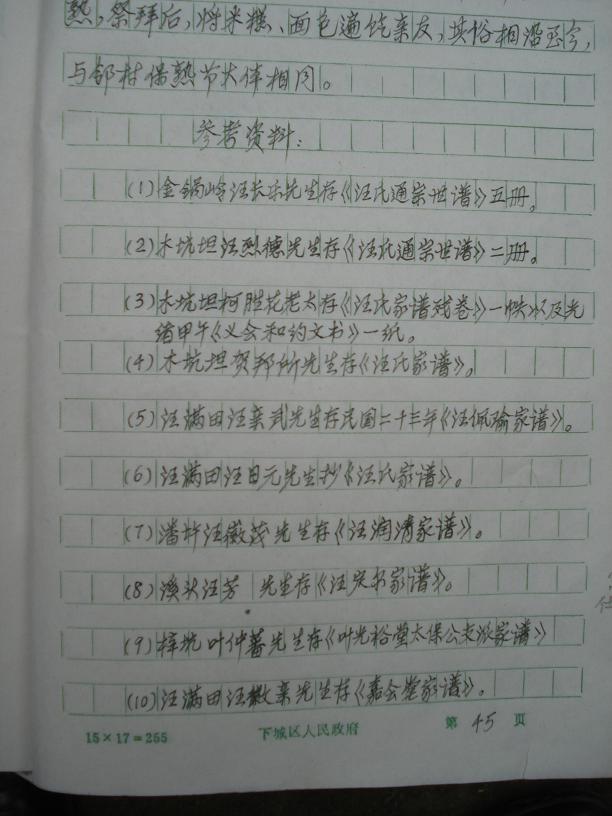 熟，祭拜后，将米糕、面包遍饶亲友，其俗相沿至今，
与邻村保熟节大体相同。
参考资料：
(1)金锅岭汪长乐先生存《汪氏通宗世谱》五册。
(2)木坑坦汪烈德先生存《汪氏通宗世谱》二册。
(3)木坑坦柯胜花老太存《汪氏家谱残卷》一帙以及光
绪甲午《义会和约文书》一纸。
(4)木坑坦贺邦所先生存《汪氏家谱》。
(5)汪满田汪来武先生存民国二十三年《汪佩瑜家谱》。
(6)汪满田汪日元先生抄《汪氏家谱》。
(7)潘圻汪徽茂先生存《汪润清家谱》。
(8)溪头汪芳 先生存《汪定书家谱》。
(9)梓坑叶仲蕃先生存《叶光裕堂太保公支派家谱》
(10)汪满田汪徽来先生存《嘉会堂家谱》。
15×17=255 下城区人民政府 第 45 页